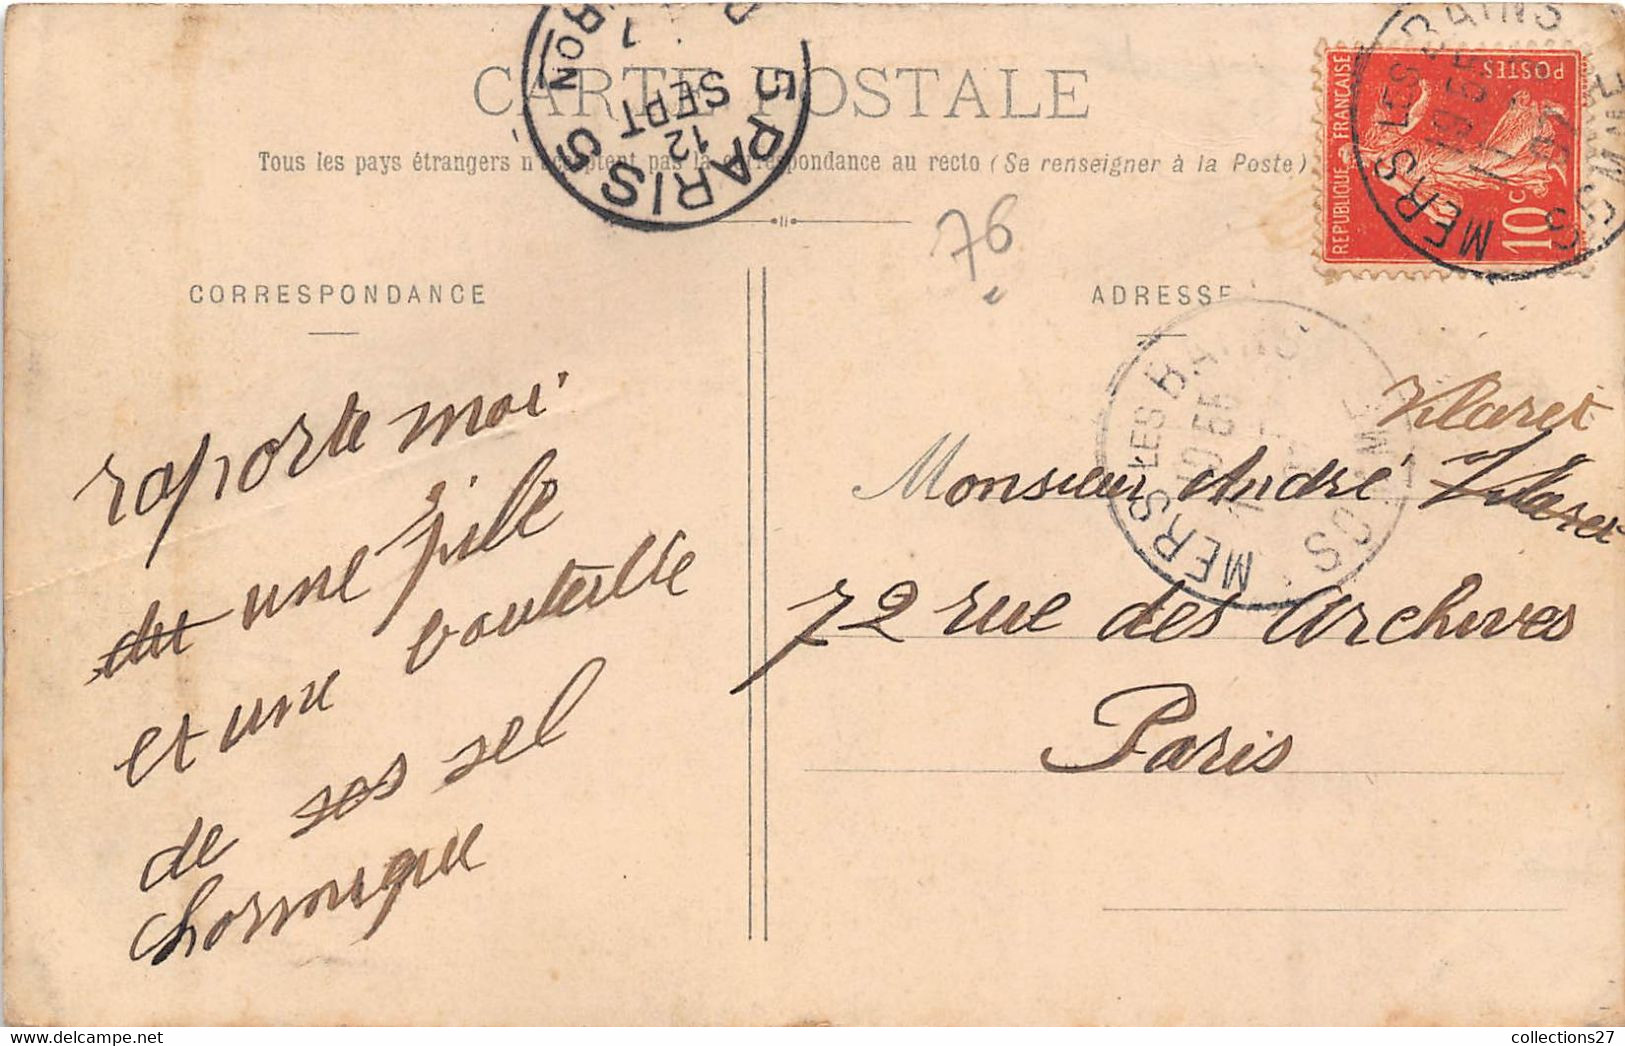 CARTE POSTALE
Tous les pays étrangers n'acceptent pas la correspondance au recto (Se renseigner à la Poste)
PARIS 5
12
SEPT
RÉPUBLIQUE FRANÇAISE
POSTES
10 c
MERS LES BAINS
SOMME
76
CORRESPONDANCE
ADRESSE
MERS LES BAINS
19 55
SOMME
raporte moi
du une pile
et une bouteille
de ses sel
Vlaret
Monsieur André Vlaret
72 rue des Archives
Paris
collections27